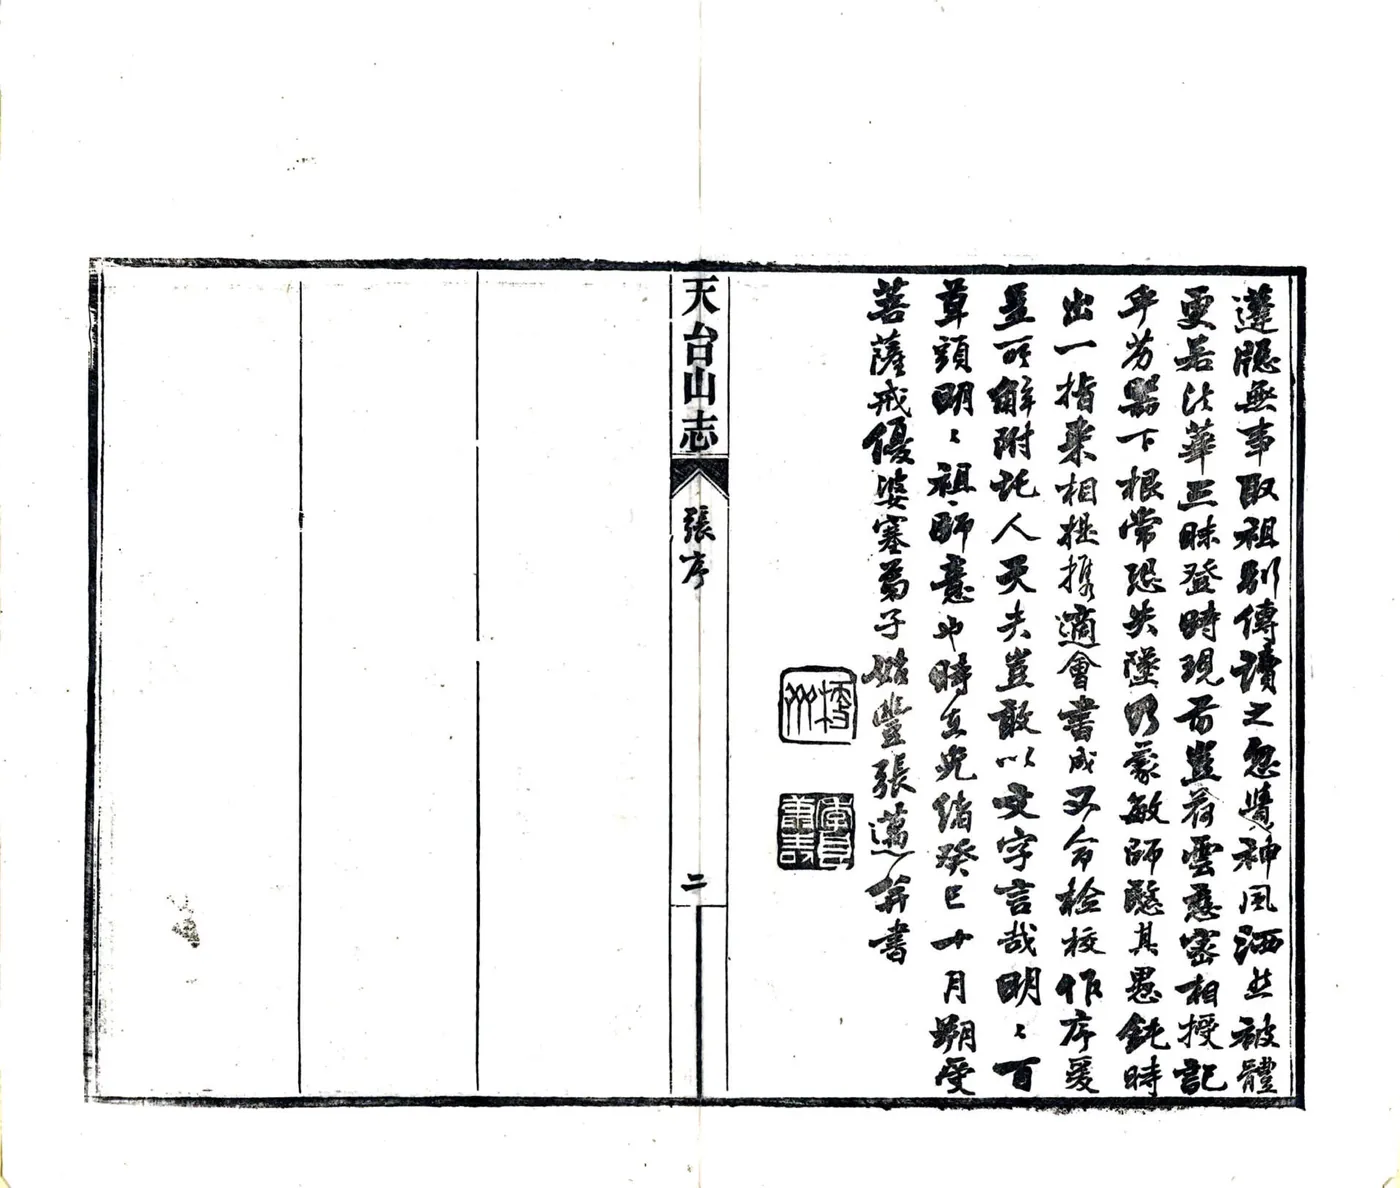 蓬牕無事取祖別傳讀之忽覺神風洒然被體
更若法華三昧登時現前豈蒋雲應密相授記
乎苐器下根常恐失墜乃蒙敏師愍其愚鈍時
出一指来相提携適會書成又命检校作序爰
豈可解附託人天夫豈敢以文字言哉明〻百
草頭明〻祖〻師意也時在先緒癸巳十月朔受
菩薩戒優婆塞苐子始豐張邁并書
天台山志
張序
二